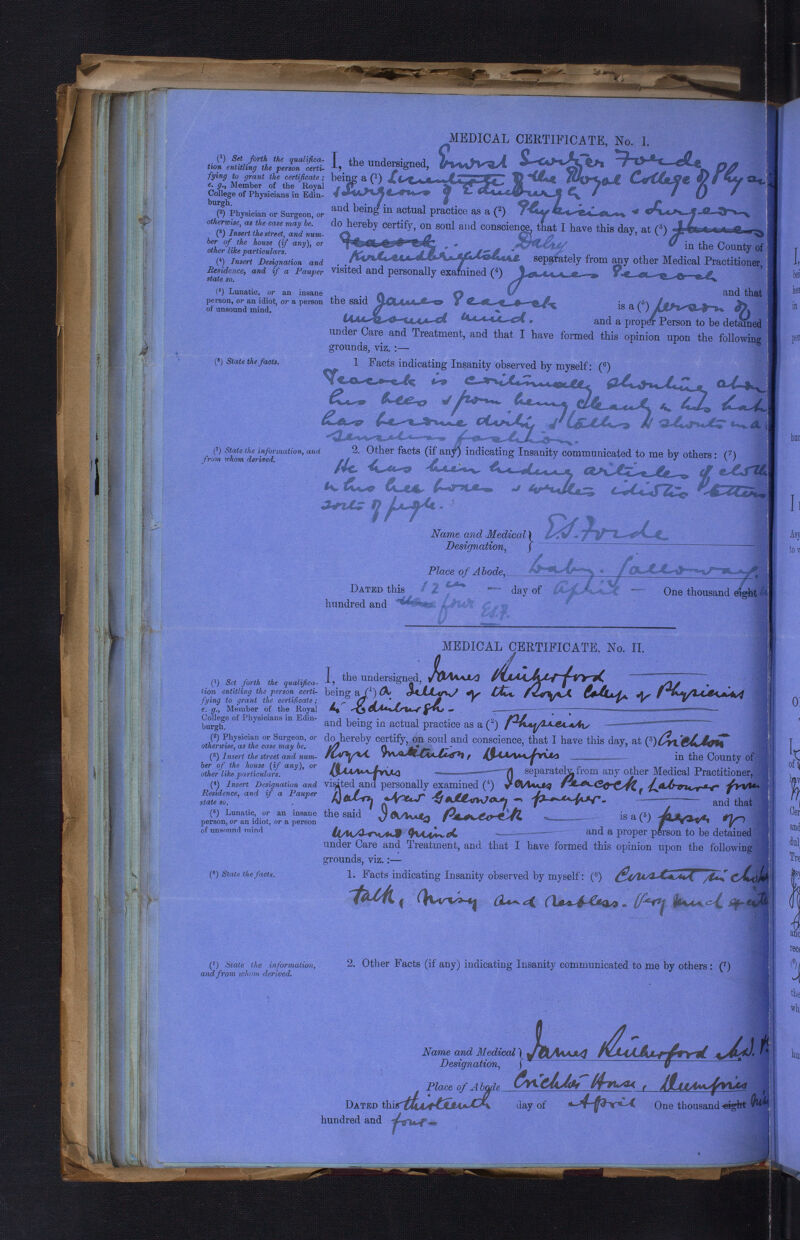 MEDICAL CERTIFICATE, No. I.
(¹) Set forth the qualifica-
tion entitling the person certi-
fying to grant the certificate;
e. g., Member of the Royal
College of Physicians in Edin-
burgh.
(²) Physician or Surgeon, or
otherwise, as the case may be.
(³) Insert the street, and num-
ber of the house (if any), or
other like particulars.
(⁴) Insert Designation and
Residence, and if a Pauper
state so.
(⁵) Lunatic, or an insane
person, or an idiot, or a person
of unsound mind.
I, the undersigned, Switzer Forde
being a (¹) Licentiate of the Royal College of
& Surgeons of Edinburgh
and being in actual practice as a (²) Physician & Surgeon
do hereby certify, on soul and conscience, that I have this day, at (³) James
Peacock Dalry in the County of
Kirkcudbrightshire separately from any other Medical Practitioner,
visited and personally examined (⁴) James Peacock
and that
the said James Peacock is a (⁵) person of
unsound mind. and a proper Person to be detained
under Care and Treatment, and that I have formed this opinion upon the following
grounds, viz. :—
(⁶) State the facts.
1 Facts indicating Insanity observed by myself: (⁶)
Peacock is continually shouting
his & from being cleanly in his
has become dirty, & talks & shouts in a
senseless fashion.
(⁷) State the information, and
from whom derived.
2. Other facts (if any) indicating Insanity communicated to me by others: (⁷)
He has been hiding articles of
in his & writes idiotic letters
sorts of people.
Name and Medical Designation, E.S. Forde
Place of Abode, Dalry. Galloway.
DATED this 12th day of April One thousand eight
hundred and four E.S.F.
MEDICAL CERTIFICATE, No. II.
(¹) Set forth the qualifica-
tion entitling the person certi-
fying to grant the certificate;
e. g., Member of the Royal
College of Physicians in Edin-
burgh.
(²) Physician or Surgeon, or
otherwise, as the case may be.
(³) Insert the street and num-
ber of the house (if any), or
other like particulars.
(⁴) Insert Designation and
Residence, and if a Pauper
state so.
(⁵) Lunatic, or an insane
person, or an idiot, or a person
of unsound mind
I, the undersigned, James Rutherford
being a (¹) a Fellow of the Royal College of Physicians
in Edinburgh -
and being in actual practice as a (²) Physician
do hereby certify, on soul and conscience, that I have this day, at (³) Crichton
Royal Institution, Dumfries in the County of
Dumfries separately from any other Medical Practitioner,
visited and personally examined (⁴) James Peacock, Labourer from
Dalry New Galloway - pauper. and that
the said James Peacock is a (⁵) person of
unsound mind and a proper person to be detained
under Care and Treatment, and that I have formed this opinion upon the following
grounds, viz. :—
(⁶) State the facts.
1. Facts indicating Insanity observed by myself: (⁶) Constant
talk, noisy and restless. Very much
(⁷) State the information,
and from whom derived.
2. Other Facts (if any) indicating Insanity communicated to me by others: (⁷)
Name and Medical Designation, James Rutherford M.D.
Place of Abode Crichton House, Dumfries
DATED this thirteenth day of April One thousand eight
hundred and four -